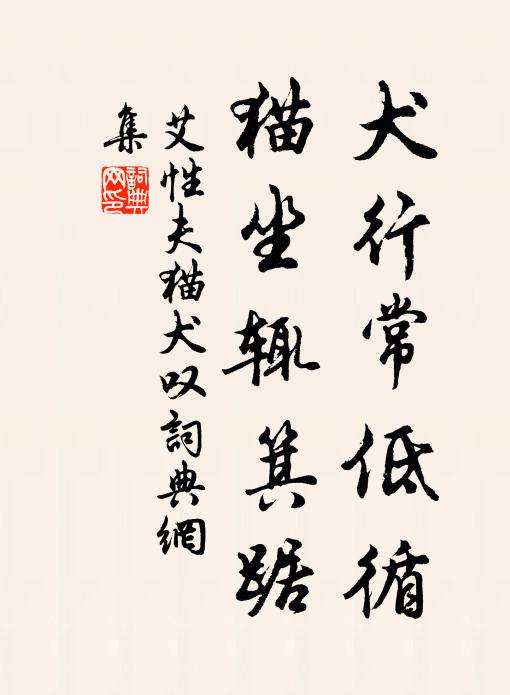 犬行常低循
猫坐辄箕踞
艾性夫猫犬叹詞典網
集
詞典
网印